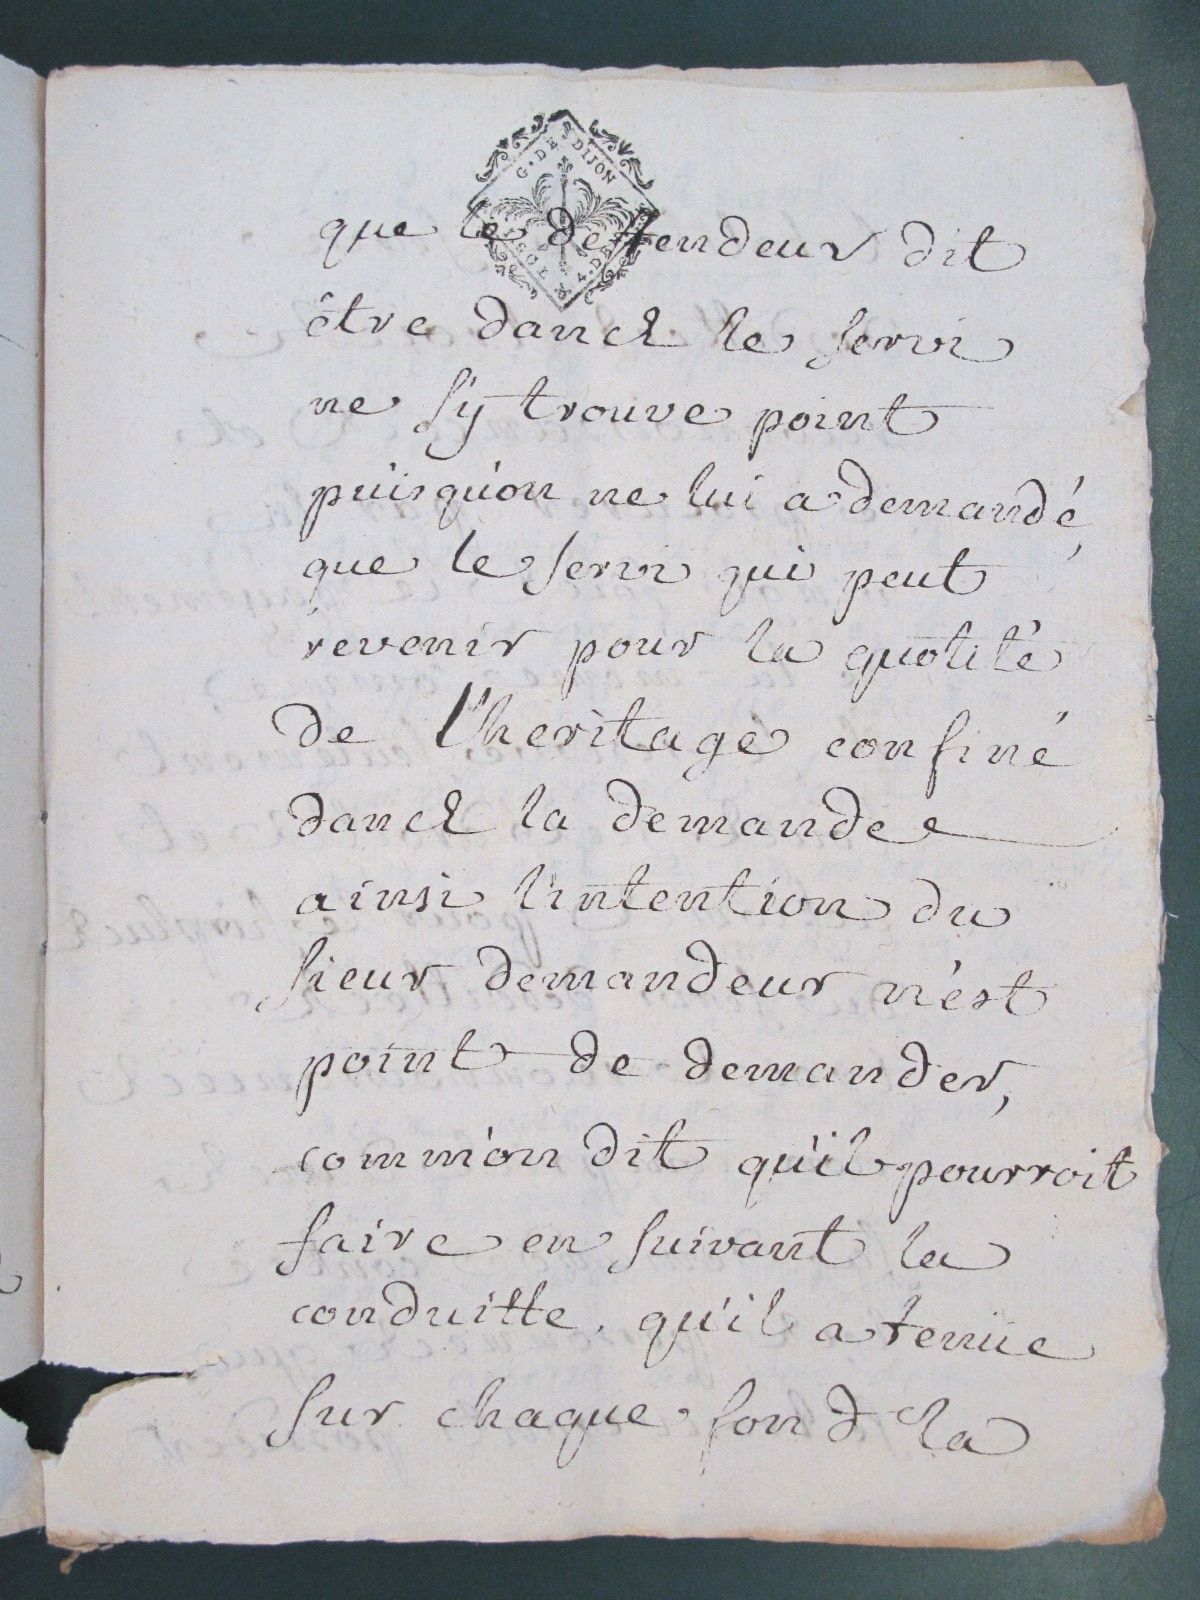 G. DE DIJON
SOL
4. DE
que le deffendeur dit
être dans le servi
ne s'y trouve point
puisqu'on ne lui a demandé
que le servi qui peut
revenir pour la quotité
de l'heritage confiné
dans la demande
ainsi l'intention du
sieur demandeur n'est
point de demander,
comm'on dit qu'il pourroit
faire en suivant la
conduitte, qu'il a tenüe
sur chaque fond la